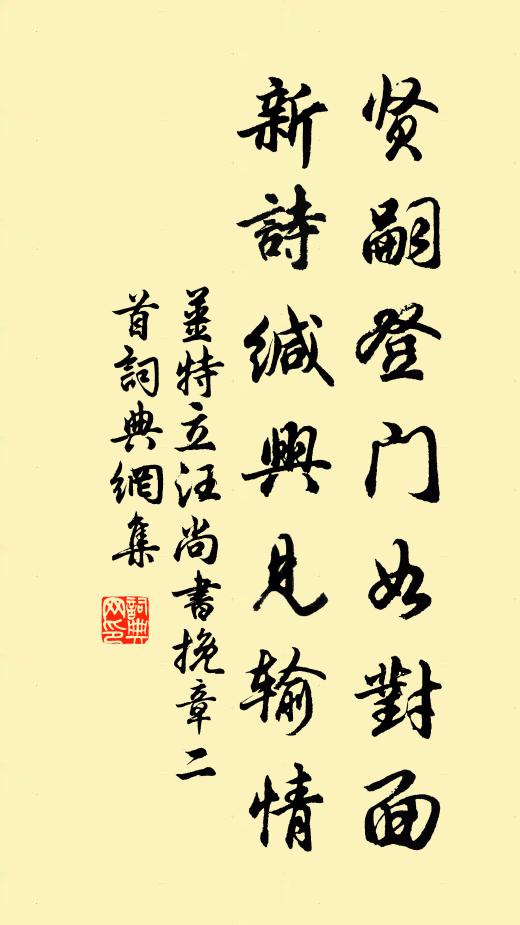 贤嗣登门如對面
新詩緘興見输情
姜特立汪尚書挽章二
首詞典網集
詞典
网印